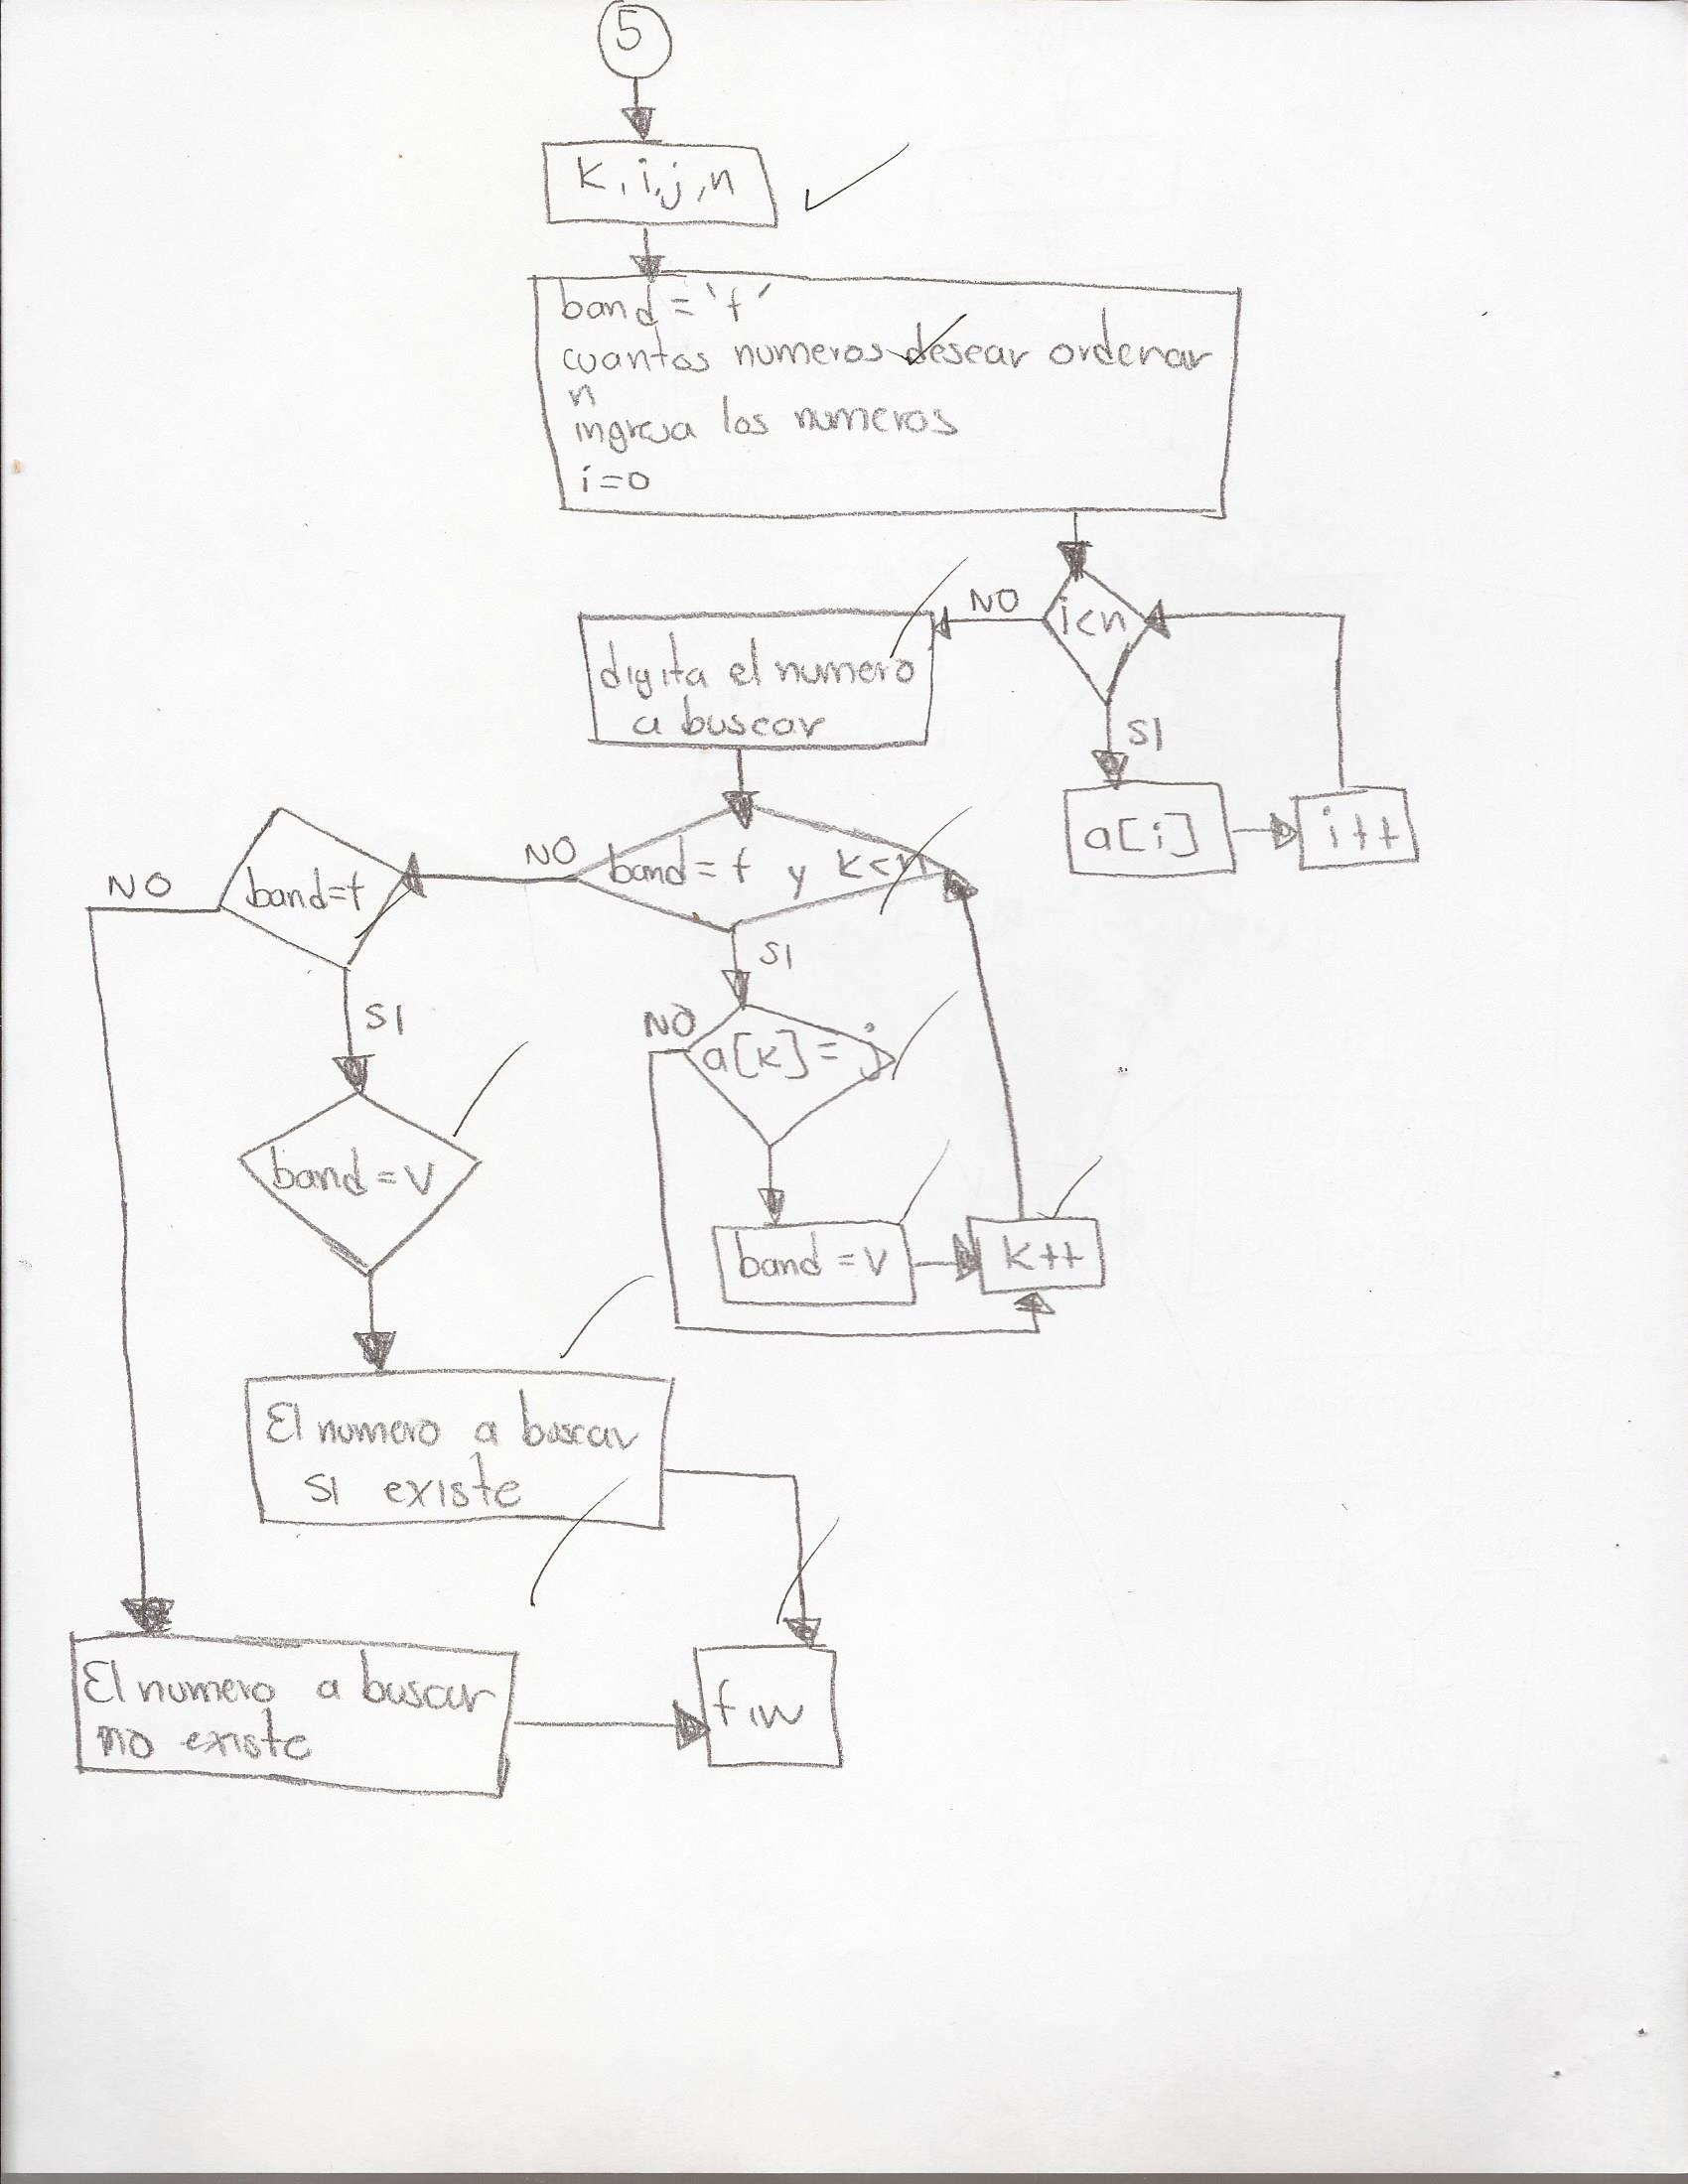 5
K, i,j,n
band = 'f'
cuantos numeros desear ordenar
n
ingresa los numeros
i=0
i<n
NO
SI
a[i]
i++
digita el numero
a buscar
band = f y k<n
NO
SI
a[k]=j
NO
band = v
k++
band=f
NO
SI
band = v
El numero a buscar
SI existe
El numero a buscar
no existe
fin